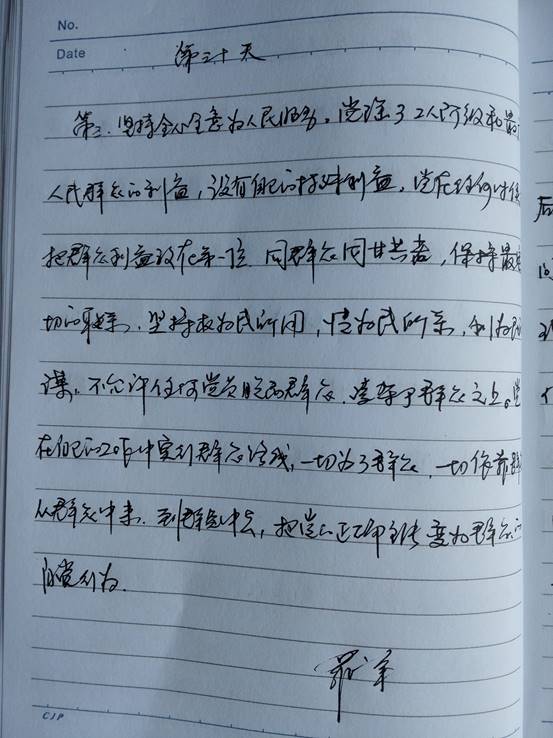 No.
Date 第三十天
第三.坚持全心全意为人民服务,党除了工人阶级和最
人民群众的利益,没有自己的特殊利益,党在任何时
把群众利益放在第一位 同群众同甘共苦,保持最
切的联系.坚持权为民所用,情为民所系,利为民
谋,不允许任何党员脱离群众.凌驾于群众之上。党
在自己的工作中实行群众路线,一切为了群众,一切依靠群
从群众中来.到群众中去,把党的正确主张变为群众的
自觉行为.
CJP